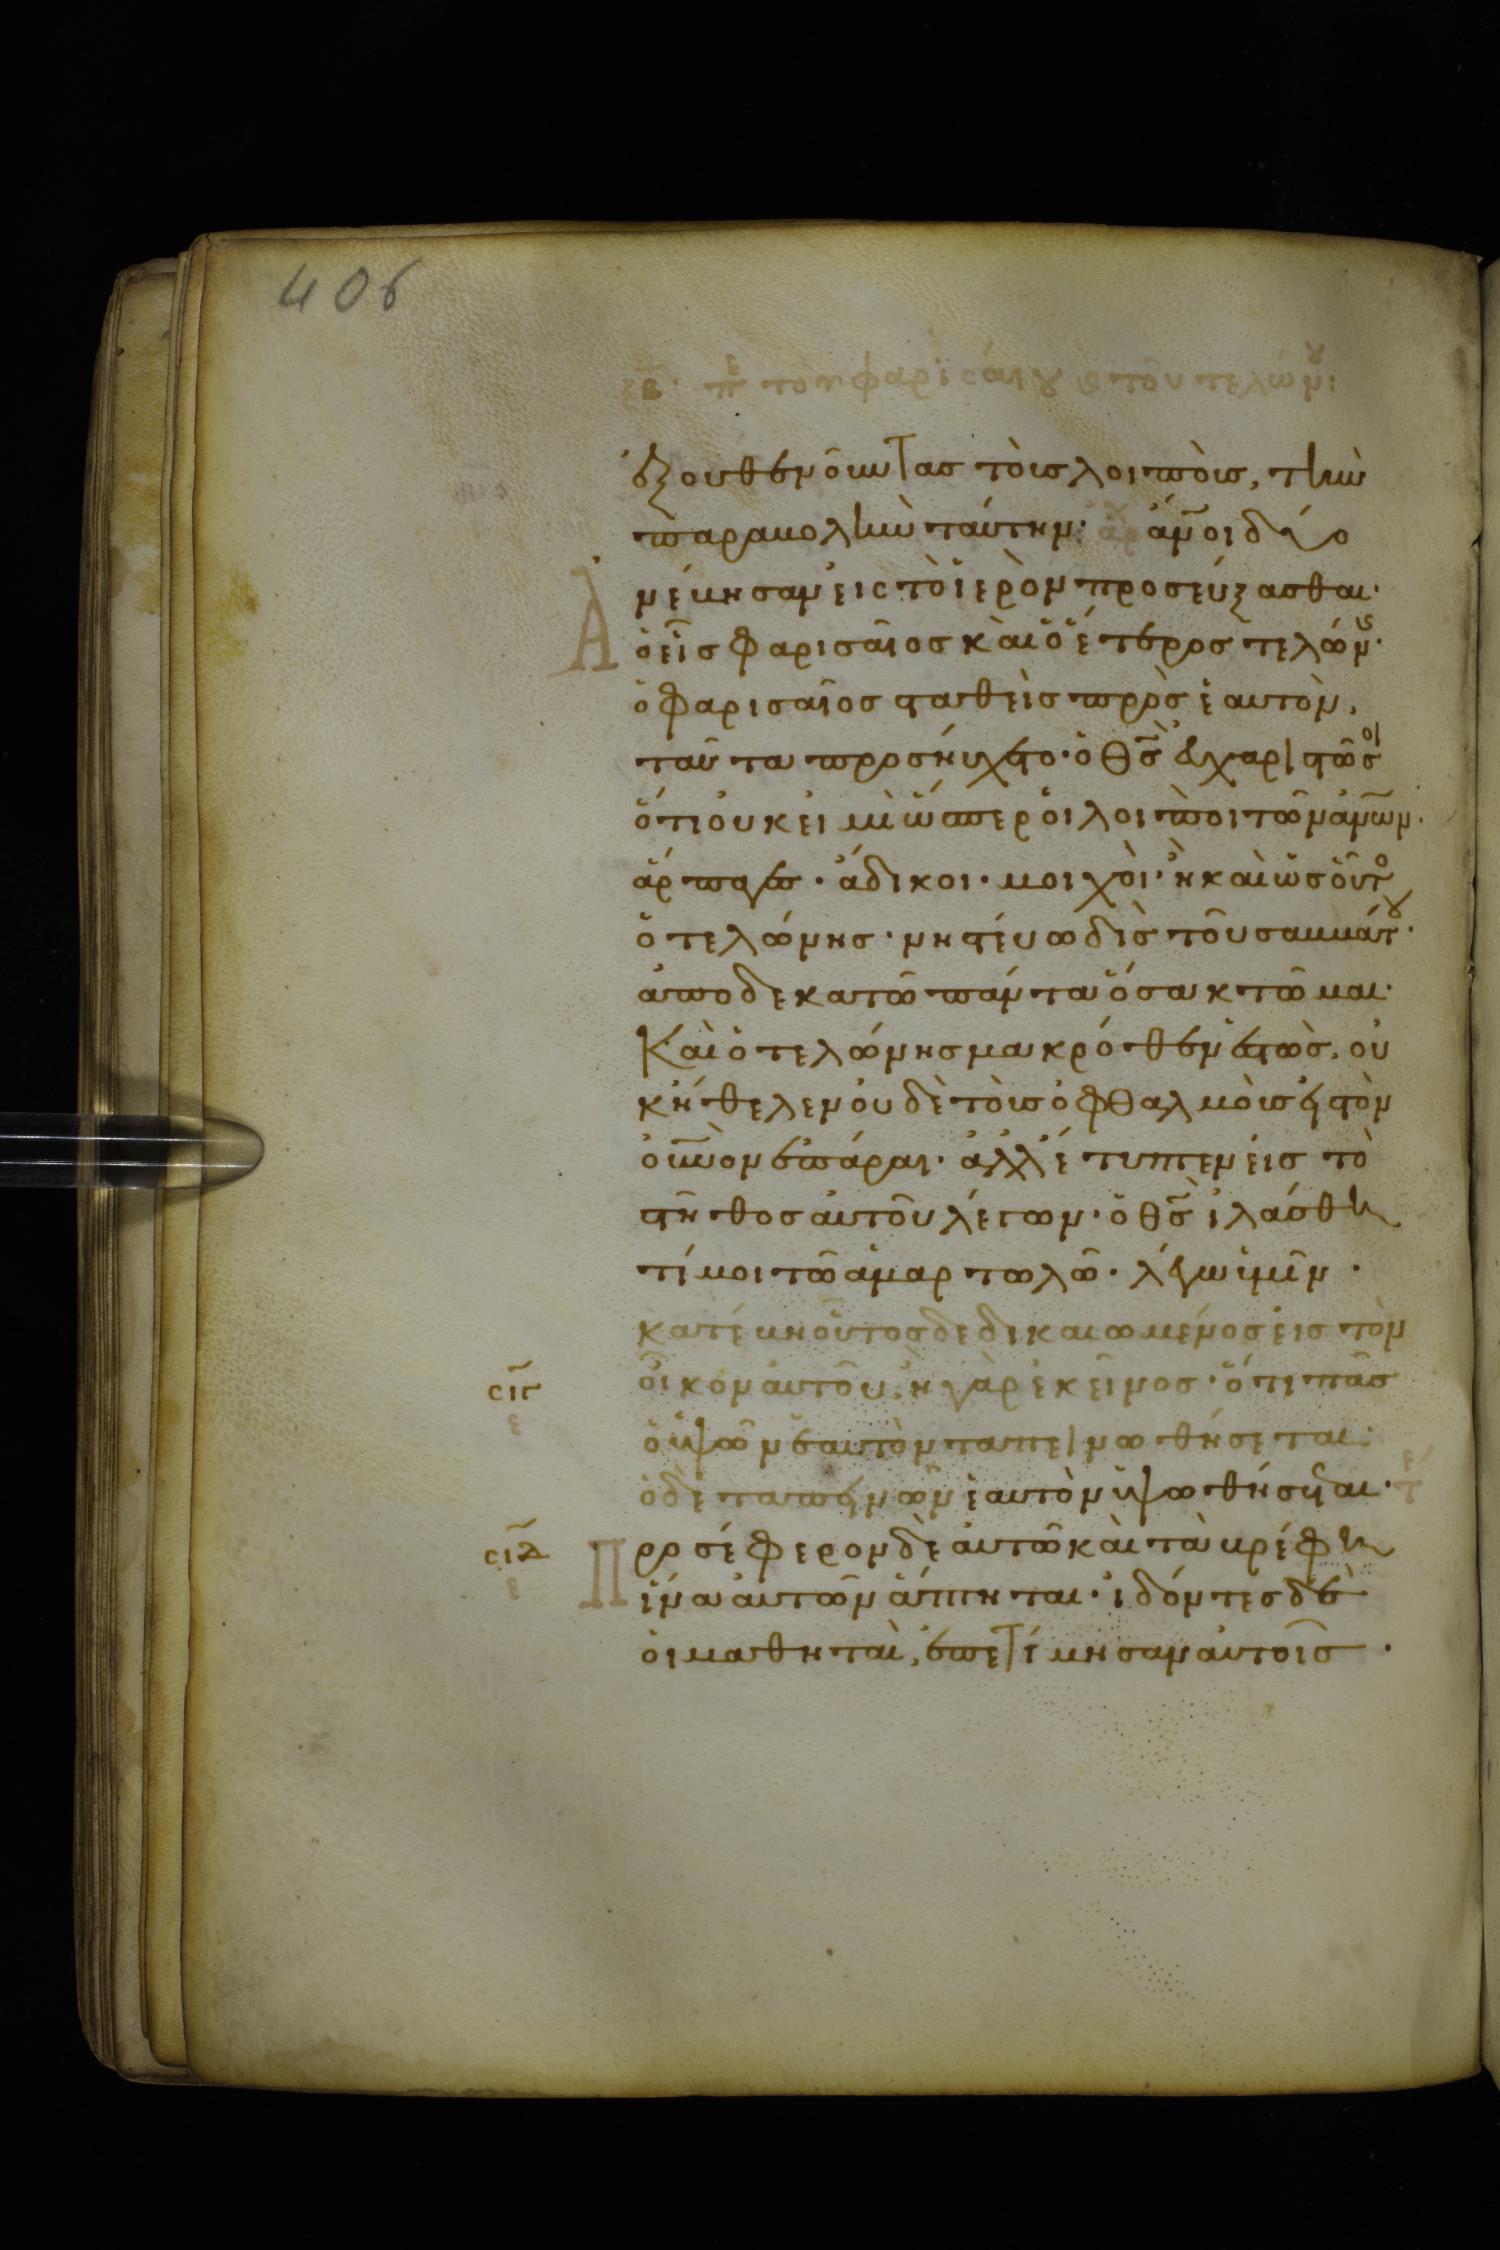 406
ξβ· π ε τοῦ φαρισαίου κ τοῦ τελώνου
ἐξουθενοῦντας τοὺς λοιποὺς, τὴν
παραβολὴν ταύτην· ἄν̅οι δύο
νέβησαν εἰς τὸ ἱερὸν προσεύξασθαι·
Α ὁ εἷς φαρισαῖος καὶ ὁ ἕτερος τελών·
ὁ φαρισαῖος σταθεὶς πρὸς ἑαυτὸν,
ταῦτα προσηύχετο· ὁ θ̅ς εὐχαριστῶ σοι
ὅτι οὐκ εἰμὶ ὥσπερ οἱ λοιποὶ τῶν ἀν̅ων·
ἅρπαγες· ἄδικοι· μοιχοὶ· ἢ καὶ ὡς οὗτο
ὁ τελώνης· νηστεύω δὶς τοῦ σαββάτου·
ἀποδεκατῶ πάντα ὅσα κτῶμαι·
Καὶ ὁ τελώνης μακρόθεν ἑστὼς, οὐ
κ ἤθελεν οὐδὲ τοὺς ὀφθαλμοὺς εἰς τὸν
οὐ̅νον ἐπάραι· ἀλλ' ἔτυπτεν εἰς τὸ
στῆθος αὐτοῦ λέγων· ὁ θ̅ς ἱλάσθη
τί μοι τῶ ἁμαρτωλῶ· λέγω ὑμῖν·
κατέβη οὗτος δεδικαιωμένος εἰς τὸν
σιγ ε οἶκον αὐτοῦ, ἢ γὰρ ἐκεῖνος· ὅτι πᾶς
ὁ ὑψῶν ἑαυτὸν ταπεινωθήσεται·
ὁ δὲ ταπεινῶν ἑαυτὸν ὑψωθήσεται· τε
σιδ ε Προσέφερον δὲ αὐτῶ καὶ τὰ βρέφη
ἵνα αὐτῶν ἅπτηται· ἰδόντες δὲ
οἱ μαθηταὶ, ἐπετίμησαν αὐτοῖς·